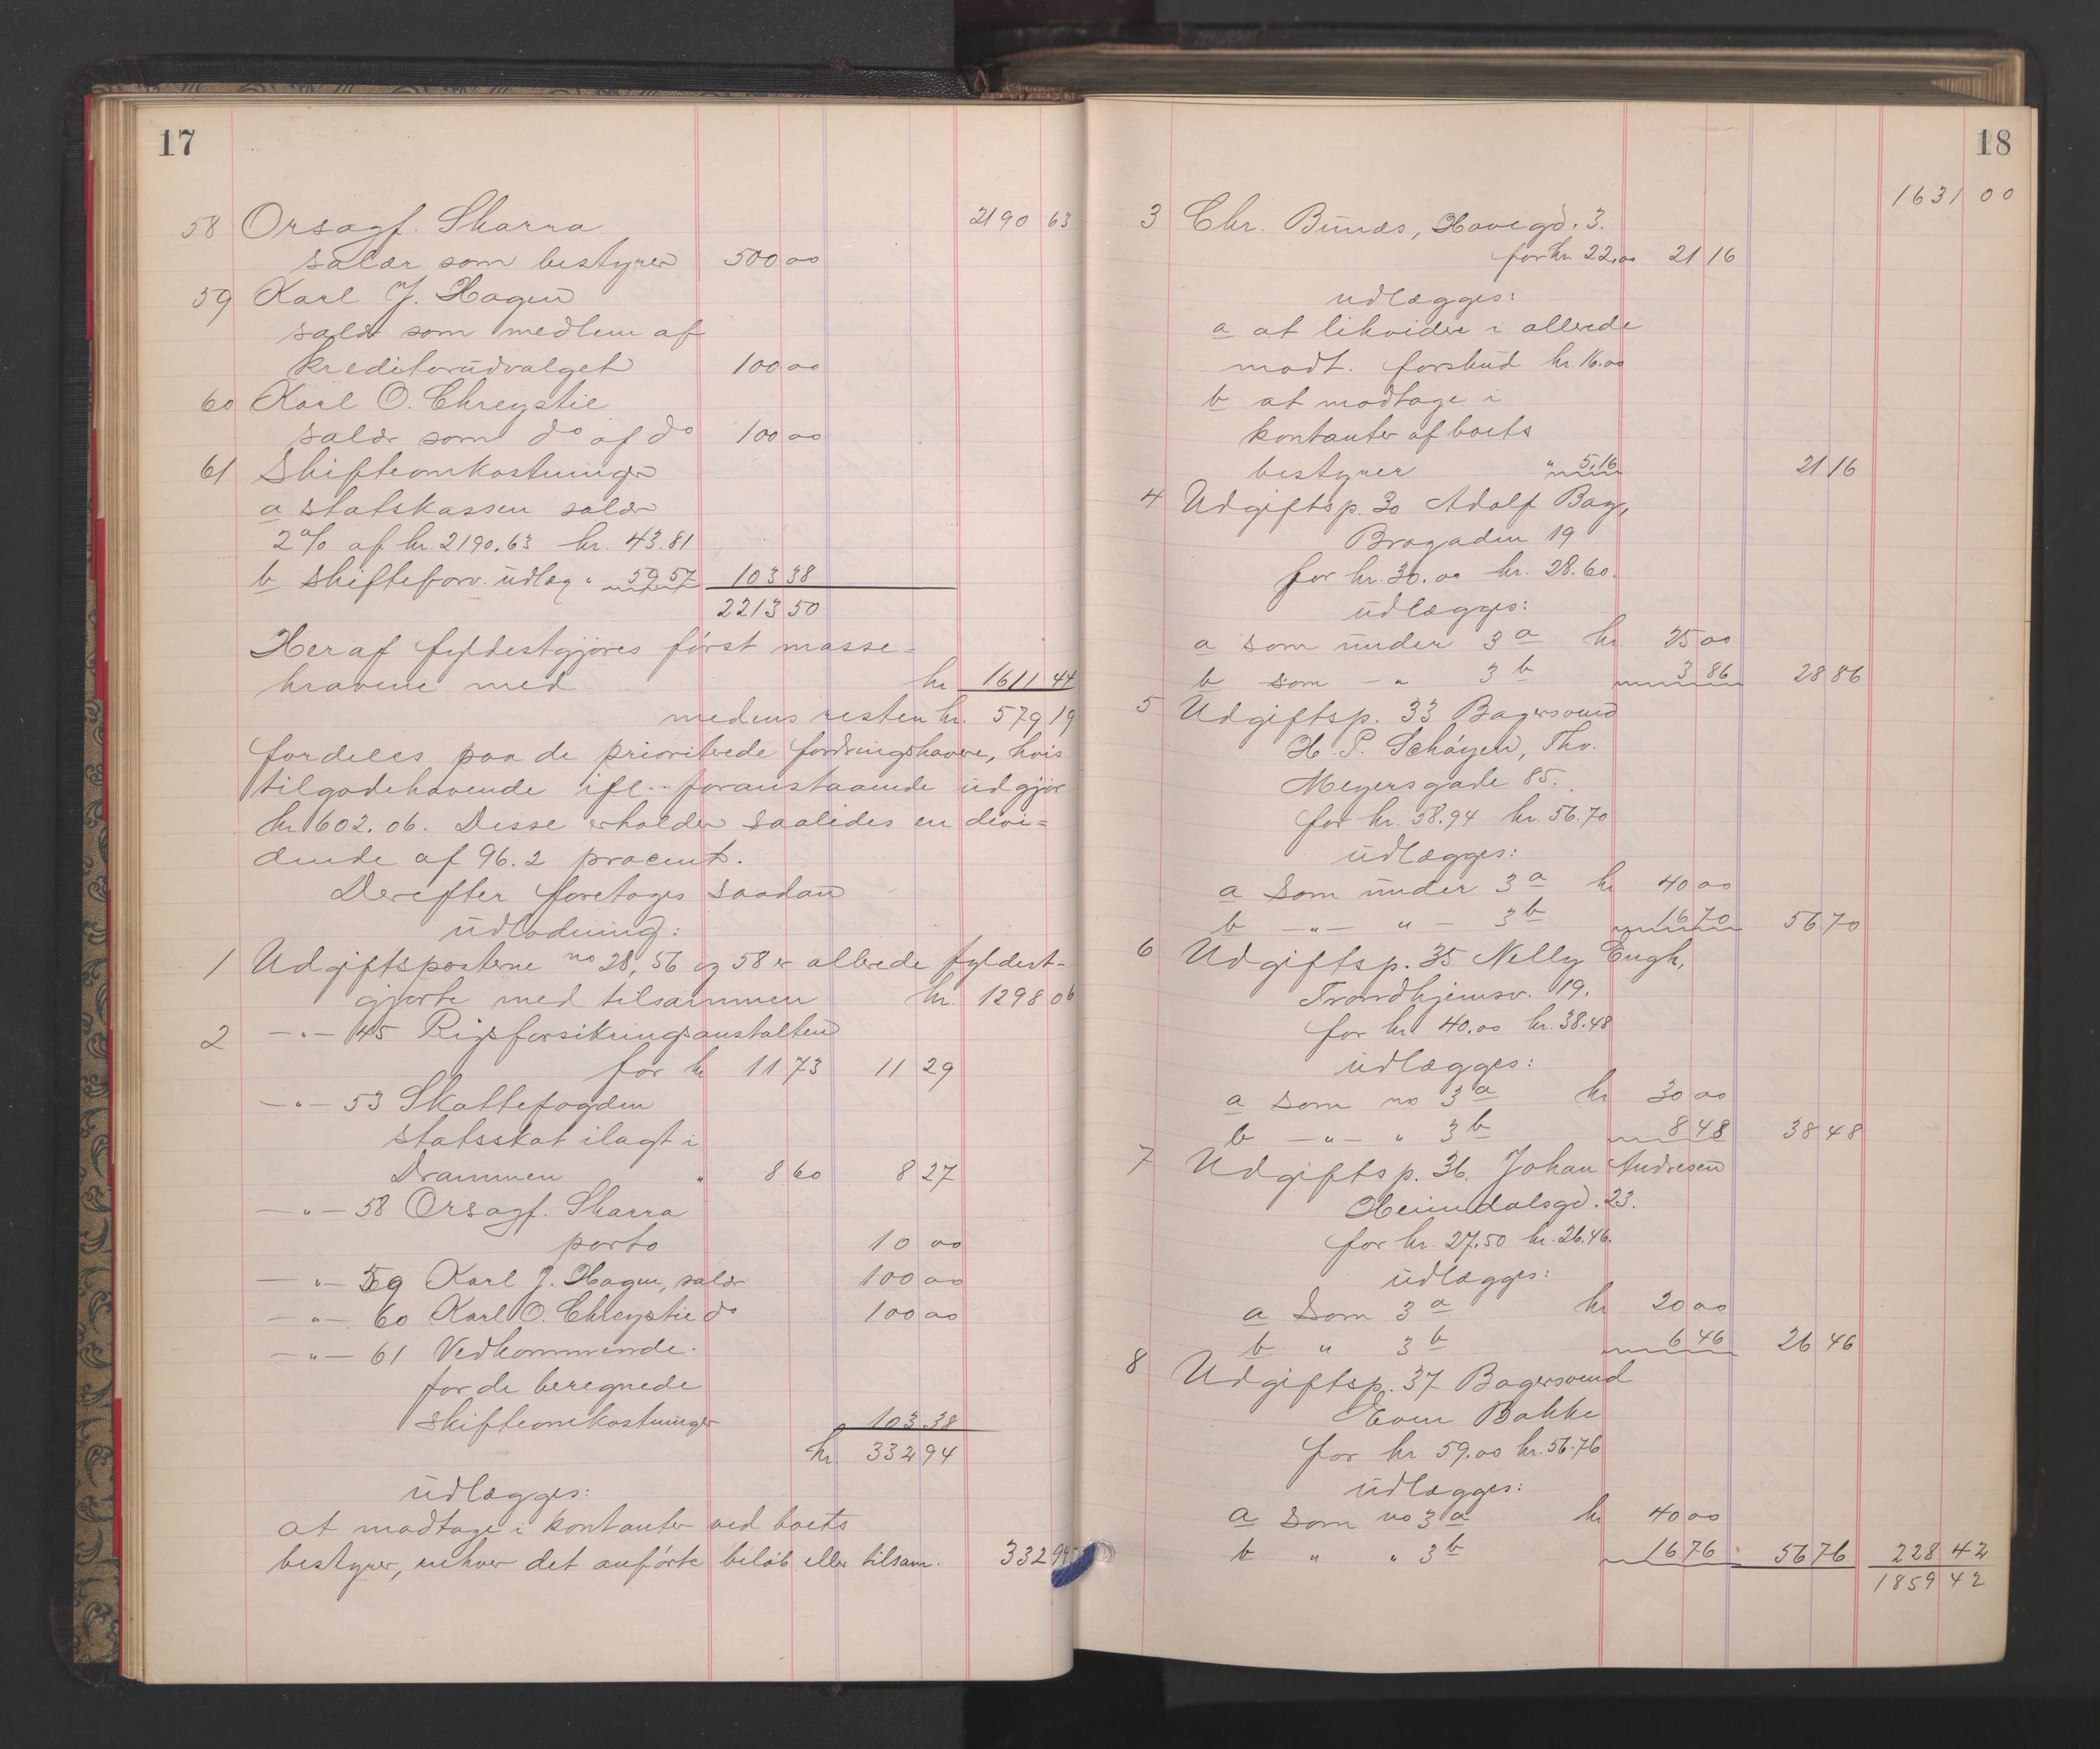 17
58 Orsagf. Skarra 2190 63
salær som bestyrer 500 00
59 Karl J. Hagen
salær som medlem af
kreditorudvalget 100 00
60 Karl O. Chrystie
salær som do af do 100 00
61 Skifteomkostninger
a statskassen salær
2% af kr. 2190.63 kr. 43.81
b skifteforv. udlæg " 59.57 103 38
2213 50
Heraf fyldestgjøres først masse-
kravene med kr 1611 44
medens resten kr. 579 19
fordeles paa de prioriterede fordringshavere, hvis
tilgodehavende ifl. foranstaaende udgjør
kr 602.06. Disse erholder saaledes en divi=
dende af 96.2 procent.
Derefter foretages saadan
udlodning:
1 Udgiftsposterne no 28, 56 og 58 er allerede fyldest-
gjorte med tilsammen kr. 1298 06
2 -"- 45 Rigsforsikringsanstalten
for kr 11 73 11 29
-"- 53 Skattefogden
statsskat ilagt i
Drammen " 8 60 8 27
-"- 58 Orsagf. Skarra
porto 10 00
-"- 59 Karl J. Hagen, salær 100 00
-"- 60 Karl O. Chrystie do 100 00
-"- 61 Vedkommende
for de beregnede
skifteomkostninger 103 38
kr 332 94
udlægges:
at modtage i kontanter ved boets
bestyrer, enhver det anførte beløb eller tilsam. 332 94
18
1631 00
3 Chr. Bunæs, Havegd. 3.
for kr. 22.00 21 16
udlægges:
a at likvidere i allerede
modt. forskud kr. 16.00
b at modtage i
kontanter af boets
bestyrer " 5.16 21 16
4 Udgiftsp. 30 Adolf Bay,
Brogaden 19
for kr. 30.00 kr. 28.60.
udlægges:
a som under 3 a kr 25 00
b som -"- 3 b 3 86 28 86
5 Udgiftsp. 33 Bagersvend
H. P. Schøyen, Thv.
Meyersgade 85.
for kr. 58.94 kr. 56.70
udlægges:
a som under 3 a kr 40 00
b -"- " - 3 b 16 70 56 70
6 Udgiftsp. 35 Nelly Engh,
Trondhjemsv. 19.
for kr 40.00 kr. 38.48
udlægges:
a som no 3 a kr 30 00
b -"- " 3 b 8 48 38 48
7 Udgiftsp. 36 Johan Andresen
Heimdalsgd. 23.
for kr. 27.50 kr. 26.46.
udlægges:
a som 3 a kr 20 00
b " 3 b 6 46 26 46
8 Udgiftsp. 37 Bagersvend
Even Bakke
for kr 59.00 kr. 56.76
udlægges:
a som no 3 a kr 40 00
b " " 3 b 16 76 56 76 228 42
1859 42